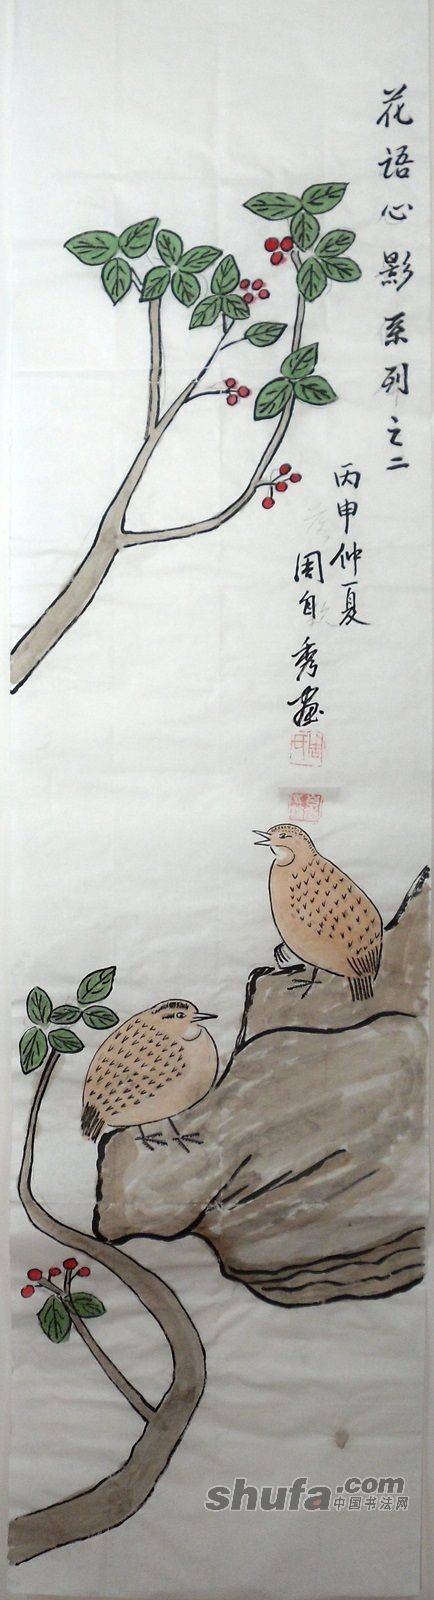 花语心影系列之二
丙申仲夏
周自秀画
shufa.com
中国书法网